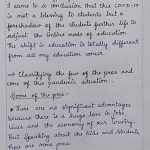 I came to a conclusion that this covid-19
is not a blessing to students but a
foreshadow of the students further life to
adjust the online mode of education.
the shift in education is totally different
from all my education career.
→ Classifying the few of the pros and
cons of this pandemic situation.
Some of the pros:-
* There are no significant advantages
because there is a huge loss to jobs,
lives and the economy of our country.
But speaking about the kids and students
there are some pros.